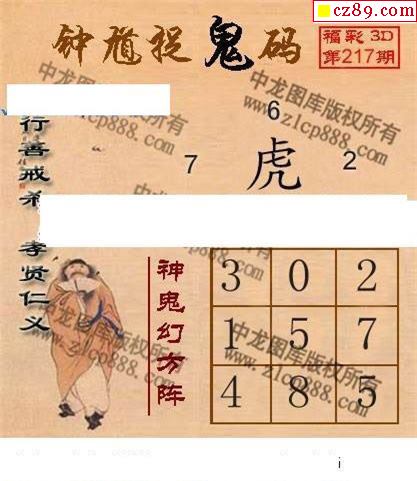 cz89.com
钟馗捉鬼码
福彩 3D
第217期
中龙图库版权所有
www.zlcp888.com
6
7 虎 2
行善戒杀 孝贤仁义
神鬼幻方阵
3 0 2
1 5 7
4 8 5
中龙图库版权所有
www.zlcp888.com
中龙图库版权所有
www.zlcp888.com
i